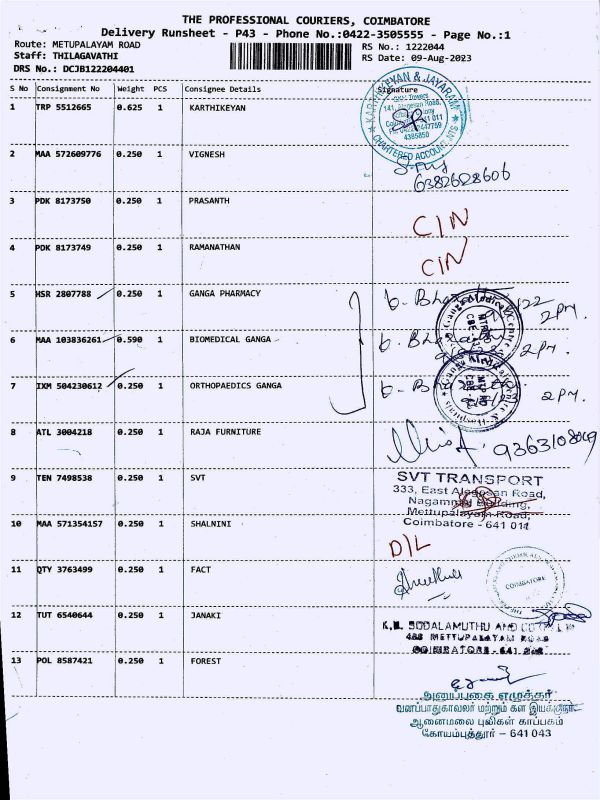 THE PROFESSIONAL COURIERS, COIMBATORE
Delivery Runsheet - P43 - Phone No.:0422-3505555 - Page No.:1
Route: METUPALAYAM ROAD
RS No.: 1222044
Staff: THILAGAVATHI
RS Date: 09-Aug-2023
DRS No.: DCJB122204401
S No Consignment No Weight PCS Consignee Details Signature
1 TRP 5512665 0.625 1 KARTHIKEYAN
KARTHIKEYAN & JAYARAM
CHARTERED ACCOUNTANTS
4385850
2 MAA 572609776 0.250 1 VIGNESH
6382628606
3 PDK 8173750 0.250 1 PRASANTH
CIN
4 PDK 8173749 0.250 1 RAMANATHAN
CIN
5 HSR 2807788 0.250 1 GANGA PHARMACY
2pm.
6 MAA 103836261 0.590 1 BIOMEDICAL GANGA
2pm.
7 IXM 504230612 0.250 1 ORTHOPAEDICS GANGA
2pm.
8 ATL 3004218 0.250 1 RAJA FURNITURE
9 TEN 7498538 0.250 1 SVT
SVT TRANSPORT
333, East Alagesan Road,
Nagammai Building,
Mettupalayam Road,
Coimbatore - 641 011
10 MAA 571354157 0.250 1 SHALNINI
D/L
11 QTY 3763499 0.250 1 FACT
COIMBATORE
12 TUT 6540644 0.250 1 JANAKI
488 METTUPALAYAM ROAD
13 POL 8587421 0.250 1 FOREST
வனப்பாதுகாவலர் மற்றும் கள இயக்குநர்
ஆனைமலை புலிகள் காப்பகம்
கோயம்புத்தூர் - 641 043